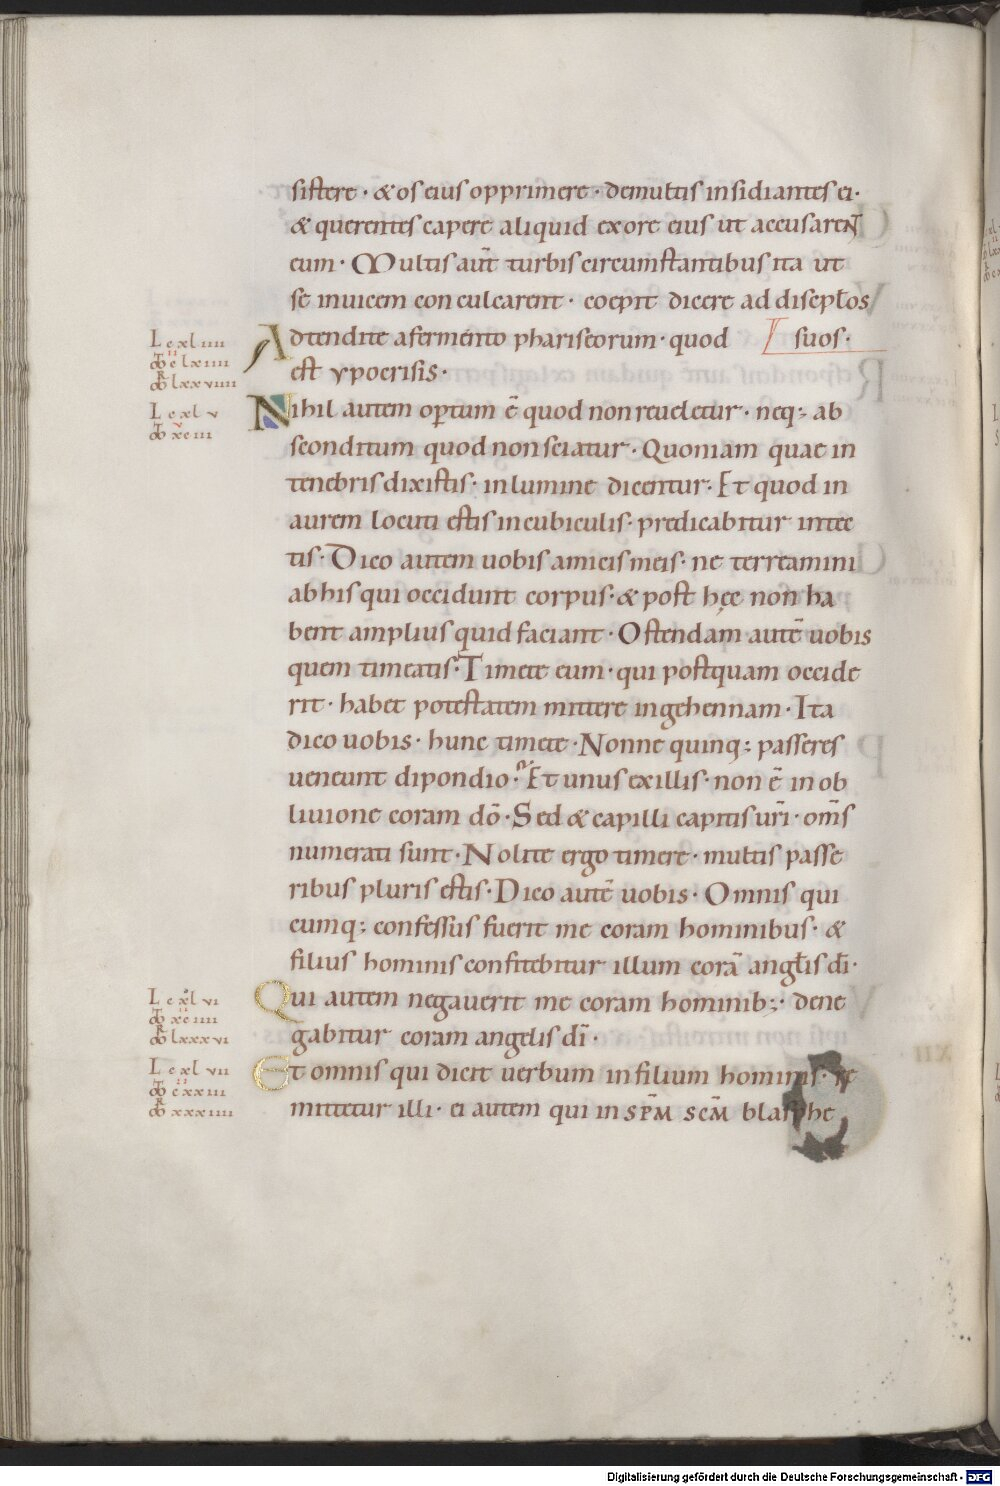 sistere · & os eius opprimere · demultis insidiantes ei ·
& querentes capere aliquid exore eius ut accusarent
eum · Multis aut̄ turbis circumstantibus ita ut
se inuicem conculcarent · coepit dicere ad discipłos
Adtendite afermento phariseorum · quod suos ·
est ypocrisis ·
Nihil autem optum ē quod non reueletur · neq; ab
sconditum quod non sciatur · Quoniam quae in
tenebris dixistis · in lumine dicentur · Et quod in
aurem locuti estis in cubiculis · predicabitur in tec
tis · Dico autem uobis amicis meis · ne terreamini
ab his qui occidunt corpus · & post hęc non ha
bent amplius quid faciant · Ostendam autē uobis
quem timeatis · Timete eum · qui postquam occide
rit · habet potestatem mittere in gehennam · Ita
dico uobis · hunc timete · Nonne quinq; passeres
ueneunt dipondio · Et unus ex illis · non ē in ob
liuione coram dō · Sed & capilli capitis ur̄i · om̄s
numerati sunt · Nolite ergo timere · multis passe
ribus pluris estis · Dico autē uobis · Omnis qui
cumq; confessus fuerit me coram hominibus · &
filius hominis confitebitur illum corā angłis dī ·
Qui autem negauerit me coram hominib; · dene
gabitur coram angelis dī ·
Et omnis qui dicit uerbum in filium hominis · re
mittetur illi · ei autem qui in sp̄m scm̄ blasphe
L cxl iiii
L cxl v
L cxl vi
L cxl vii
Digitalisierung gefördert durch die Deutsche Forschungsgemeinschaft - DFG